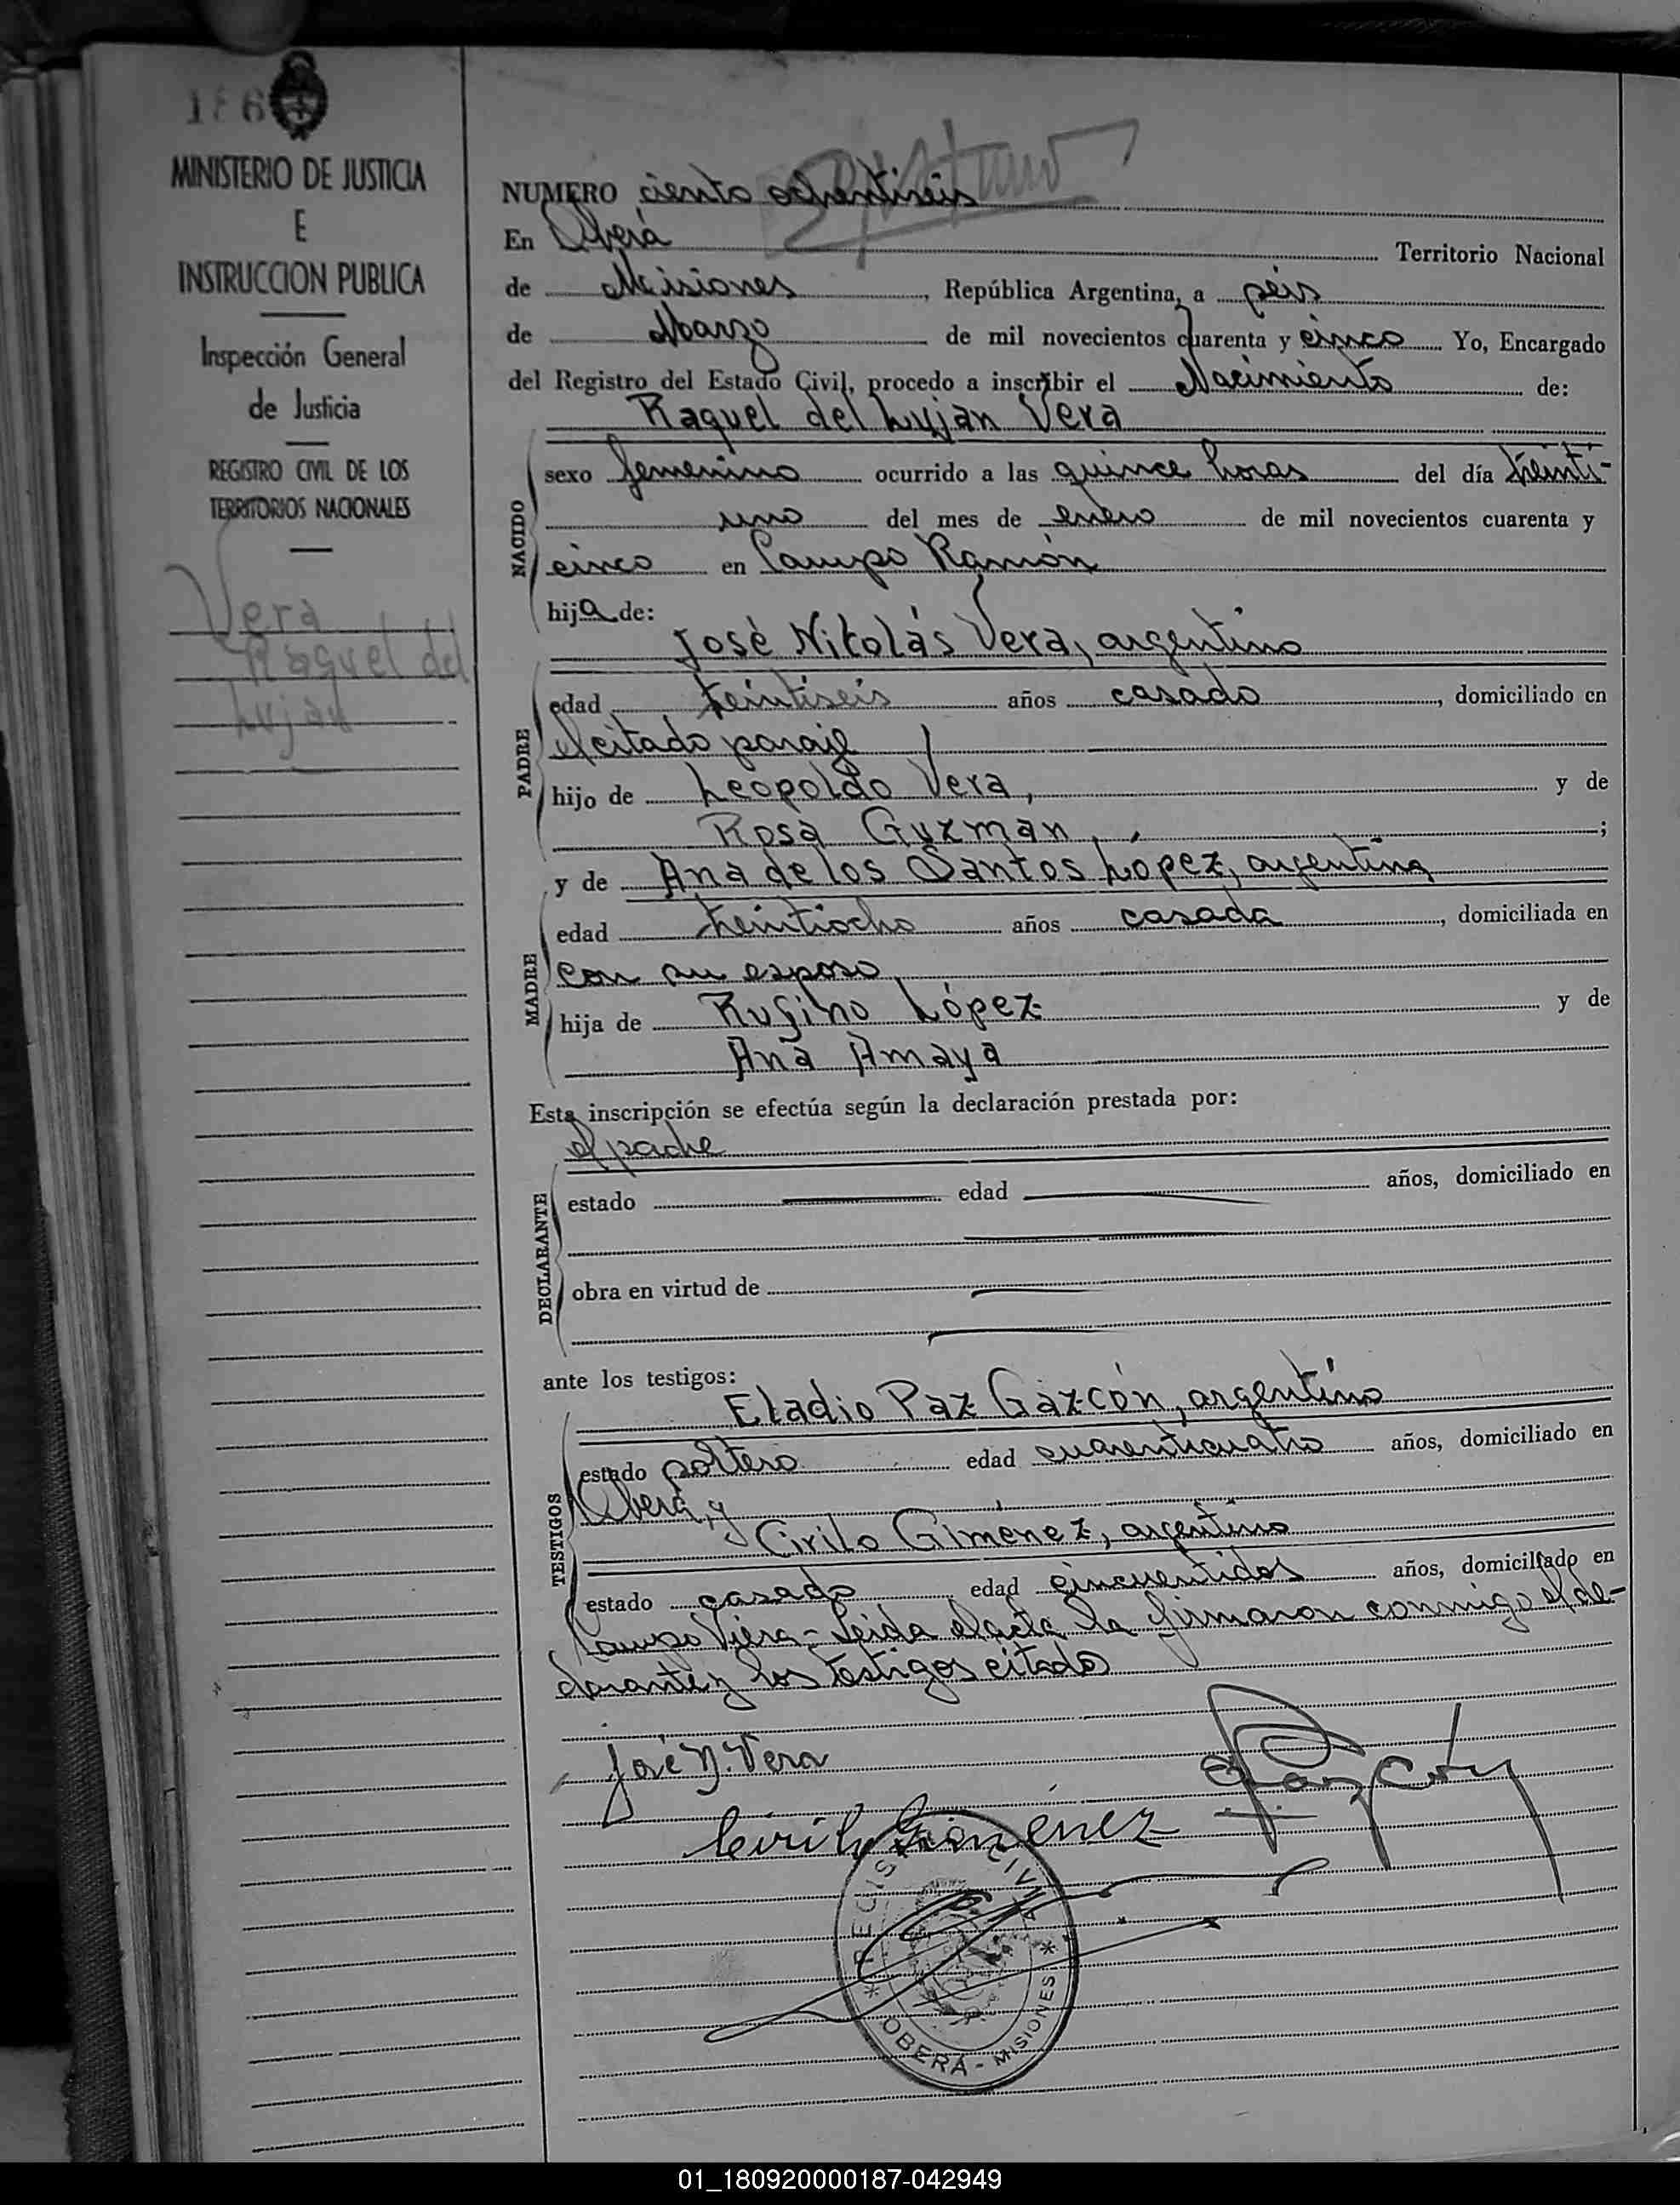 186
MINISTERIO DE JUSTICIA
E
INSTRUCCION PUBLICA
Inspección General
de Justicia
REGISTRO CIVIL DE LOS
TERRITORIOS NACIONALES
Vera
Raquel del
Luján
NUMERO ciento ochentiseis
En Oberá Territorio Nacional
de Misiones, República Argentina, a seis
de Marzo de mil novecientos cuarenta y cinco Yo, Encargado
del Registro del Estado Civil, procedo a inscribir el Nacimiento de:
Raquel del Luján Vera
NACIDO
sexo femenino ocurrido a las quince horas del día treinti-
uno del mes de enero de mil novecientos cuarenta y
cinco en Campo Ramón
hija de:
José Nikolás Vera, argentino
PADRE
edad treintiseis años casado, domiciliado en
el citado paraje
hijo de Leopoldo Vera, y de
Rosa Guzmán, ;
y de Ana de los Santos López, argentina
MADRE
edad treintiocho años casada, domiciliada en
con su esposo
hija de Rufino López y de
Ana Amaya
Esta inscripción se efectúa según la declaración prestada por:
el padre
DECLARANTE
estado edad años, domiciliado en
obra en virtud de
ante los testigos:
Eladio Paz Gazcón, argentino
TESTIGOS
estado soltero edad cuarenticuatro años, domiciliado en
Oberá, y
Cirilo Giménez, argentino
estado casado edad cincuentidos años, domiciliado en
Campo Viera - Leida el acta la firmaron conmigo el de-
clarante y los testigos citados
José N. Vera
Cirilo Giménez
REGISTRO CIVIL
OBERÁ - MISIONES
01_180920000187-042949